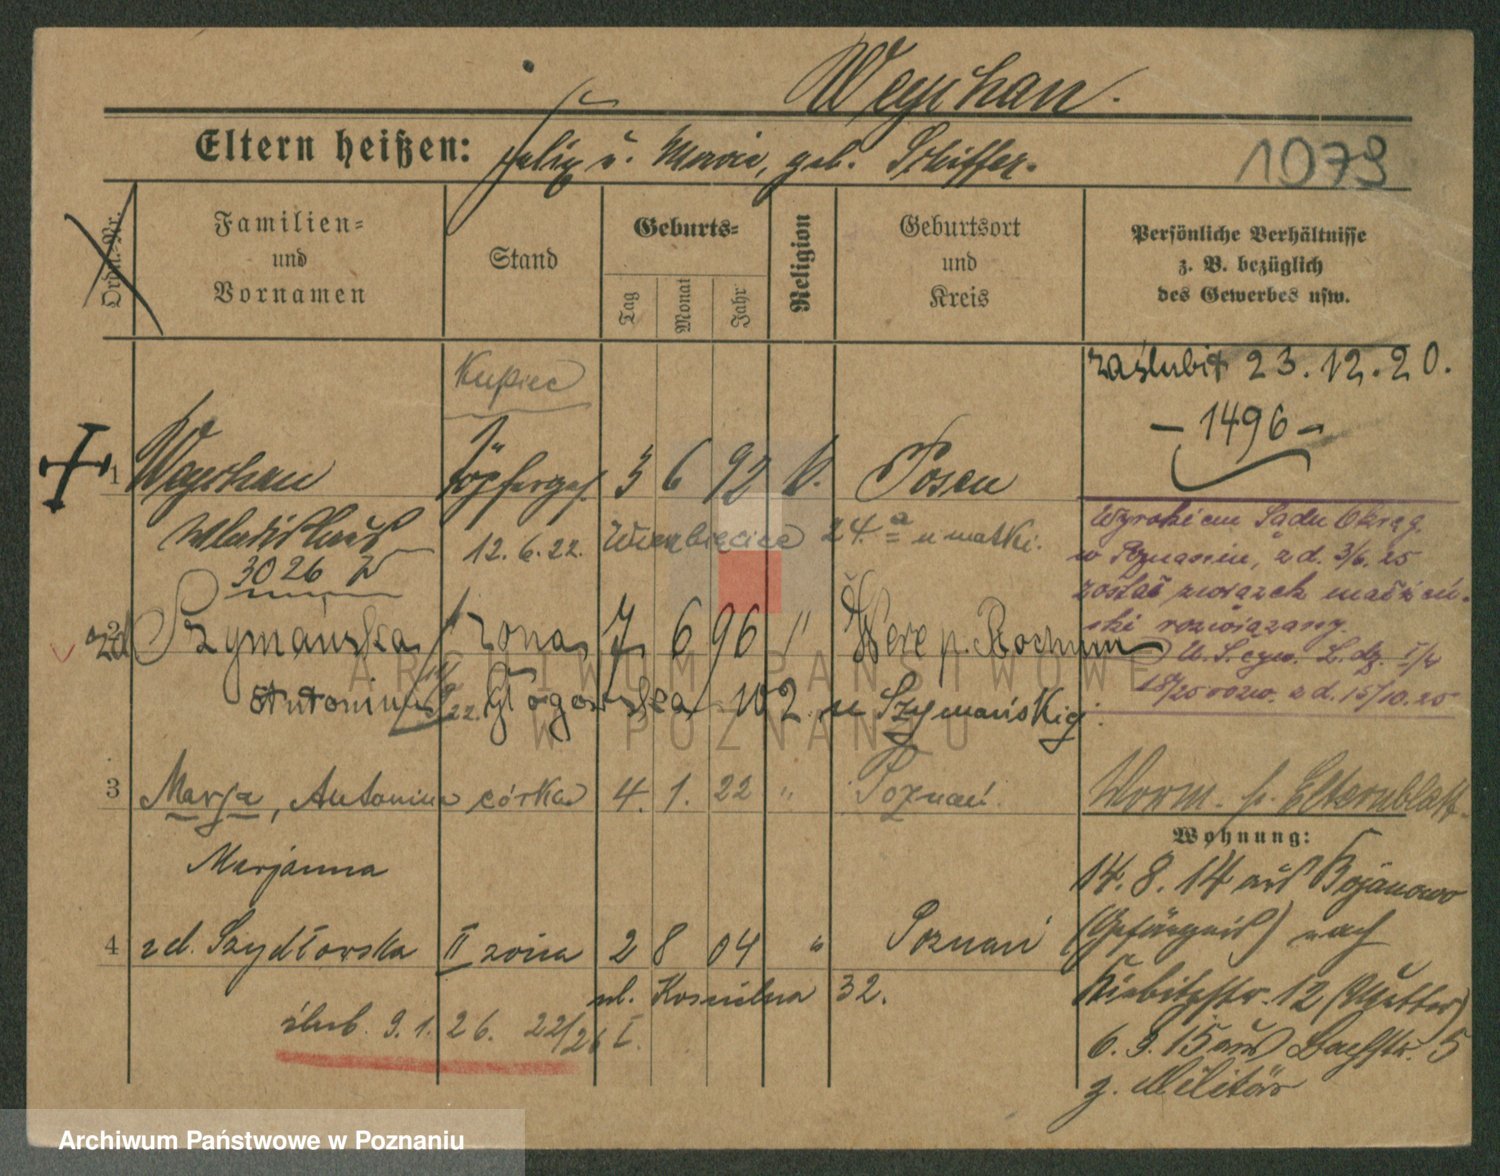 Weychan.
Eltern heißen: Felix u. Marie, geb. Schiffer.
1079
Ordn.-Nr.
Familien- und Vornamen
Stand
Geburts-
Tag
Monat
Jahr
Religion
Geburtsort und Kreis
Persönliche Verhältnisse z. B. bezüglich des Gewerbes usw.
Kupiec
zaślubił 23.12.20.
- 1496 -
1 Weychan Töpferges. 3 6 92 k. Posen
Wladislaus 12.6.22. Wierzbięcice 24.a u matki.
3026
Wyrokiem Sądu Okręg.
w Poznaniu, z d. 3/6. 25
został związek małżeń-
ski rozwiązany.
18/25 rozw. z d. 15/10.25
2 zd Szymańska żona 7 6 96 " Jeżyce p. Bochum
Antonina 22. Głogowska 102 u Szymańskiej.
3 Marja, Antonina córka 4. 1. 22 " Poznań.
Elternblatt.
Wohnung:
Marjanna
14. 8. 14 aus Bojanowo
4 zd. Szydłowska II żona 2 8 04 " Poznań
(Gefängnis) nach
ul. Kościelna 32.
Kiebitzstr. 12 (Mutter)
ślub. 9. 1. 26. 22/26 I.
6. 3. 15 aus Bachstr. 5
z. Militär
ARCHIWUM PAŃSTWOWE
W POZNANIU
Archiwum Państwowe w Poznaniu